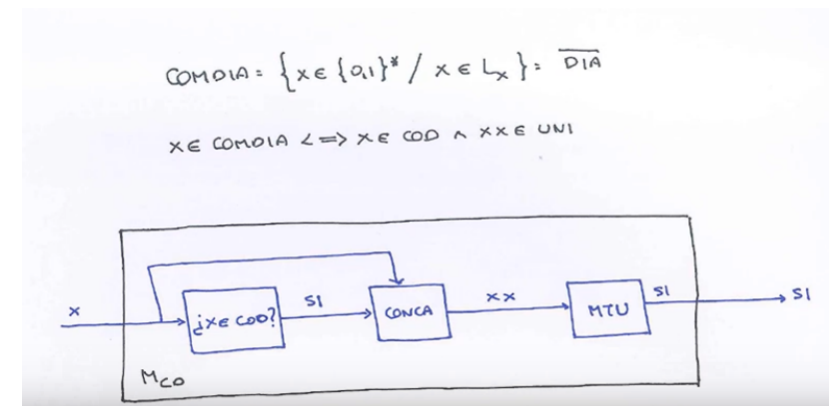 COMDIA = {x ∈ {0,1}* / x ∈ Lx} = D̅I̅A̅
x ∈ COMDIA <=> x ∈ COD ∧ xx ∈ UNI
x
¿x ∈ COD?
SI
CONCA
xx
MTU
SI
SI
Mco